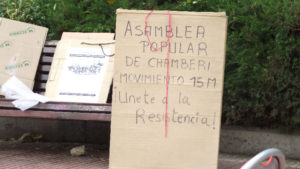 ASAMBLEA
POPULAR
DE CHAMBERÍ
MOVIMIENTO 15M
¡Unete a la
Resistencia!